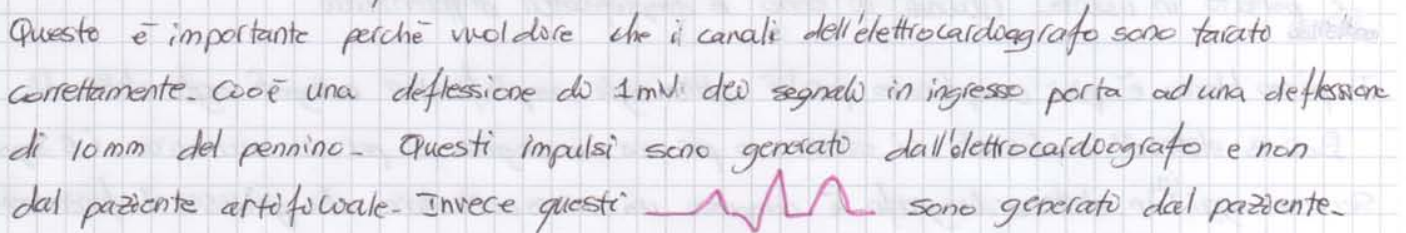 Questo è importante perchè vuol dire che i canali dell'elettrocardiografo sono tarati
correttamente. Cioè una deflessione di 1mV. dei segnali in ingresso porta ad una deflessione
di 10mm del pennino. Questi impulsi sono generati dall'elettrocardiografo e non
dal paziente artificiale. Invece questi sono generati dal paziente.